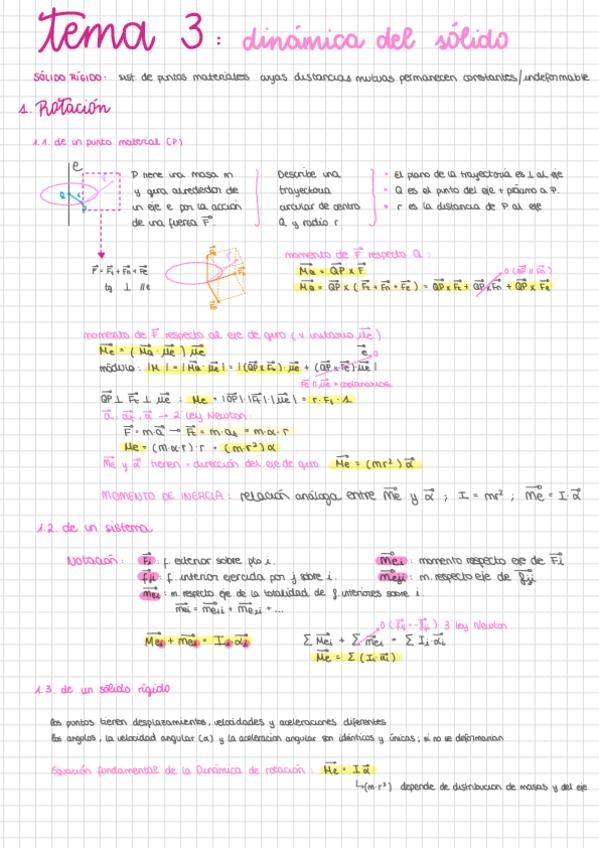 tema 3: dinámica del sólido
SÓLIDO RÍGIDO: sist. de puntos materiales cuyas distancias mutuas permanecen constantes/indeformable
1. Rotación
1.1. de un punto material (P)
e
P tiene una masa m
y gira alrededor de
un eje e por la acción
de una fuerza F⃗
Describe una
trayectoria
circular de centro
Q y radio r
• El plano de la trayectoria es ⊥ al eje
• Q es el punto del eje + próximo a P.
• r es la distancia de P al eje
F⃗ = F⃗t + F⃗n + F⃗e
tg ⊥ //e
momento de F⃗ respecto Q:
M⃗Q = QP⃗ x F⃗
0 (QP⃗ // F⃗n)
M⃗Q = QP⃗ x (F⃗t + F⃗n + F⃗e) = QP⃗ x F⃗t + QP⃗ x F⃗n + QP⃗ x F⃗e
momento de F⃗ respecto al eje de giro (v. unitario μ⃗e)
M⃗e = (M⃗Q · μ⃗e) μ⃗e
módulo: |M⃗| = |M⃗Q · μ⃗e| = |(QP⃗ x F⃗t) · μ⃗e + (QP⃗ x F⃗e) · μ⃗e|
F⃗e // μ⃗e = coplanarios
QP⃗ ⊥ F⃗t ⊥ μ⃗e : Me = |QP⃗| · |F⃗t| · |μ⃗e| = r · Ft · 1
a⃗, a⃗t, α⃗ → 2ª ley Newton
F⃗ = m·a⃗ → F⃗t = m·at = m·α·r
Me = (m·α·r) · r = (m·r²) α
M⃗e y α⃗ tienen = dirección del eje de giro M⃗e = (mr²) α⃗
MOMENTO DE INERCIA: relación análoga entre M⃗e y α⃗ ; I = mr² ; M⃗e = I·α⃗
1.2. de un sistema
Notación: F⃗i : f. exterior sobre pto i.
M⃗ei : momento respecto eje de F⃗i
f⃗ji : f. interior ejercida por j sobre i.
m⃗eji : m. respecto eje de f⃗ji
m⃗ei : m. respecto eje de la totalidad de f. interiores sobre i.
m⃗ei = m⃗e1i + m⃗e2i + ...
0 (f⃗ij = -f⃗ji) 3 ley Newton
M⃗ei + m⃗ei = Ii α⃗i
Σ M⃗ei + Σ m⃗ei = Σ Ii·α⃗i
M⃗e = Σ (Ii·α⃗i)
1.3. de un sólido rígido
los puntos tienen desplazamientos, velocidades y aceleraciones diferentes
los angulos, la velocidad angular (α) y la aceleracion angular son idénticos y únicas; si no se deformarían
Equación fundamental de la Dinámica de rotación: M⃗e = I α⃗
↳(m·r²) depende de distribucion de masas y del eje